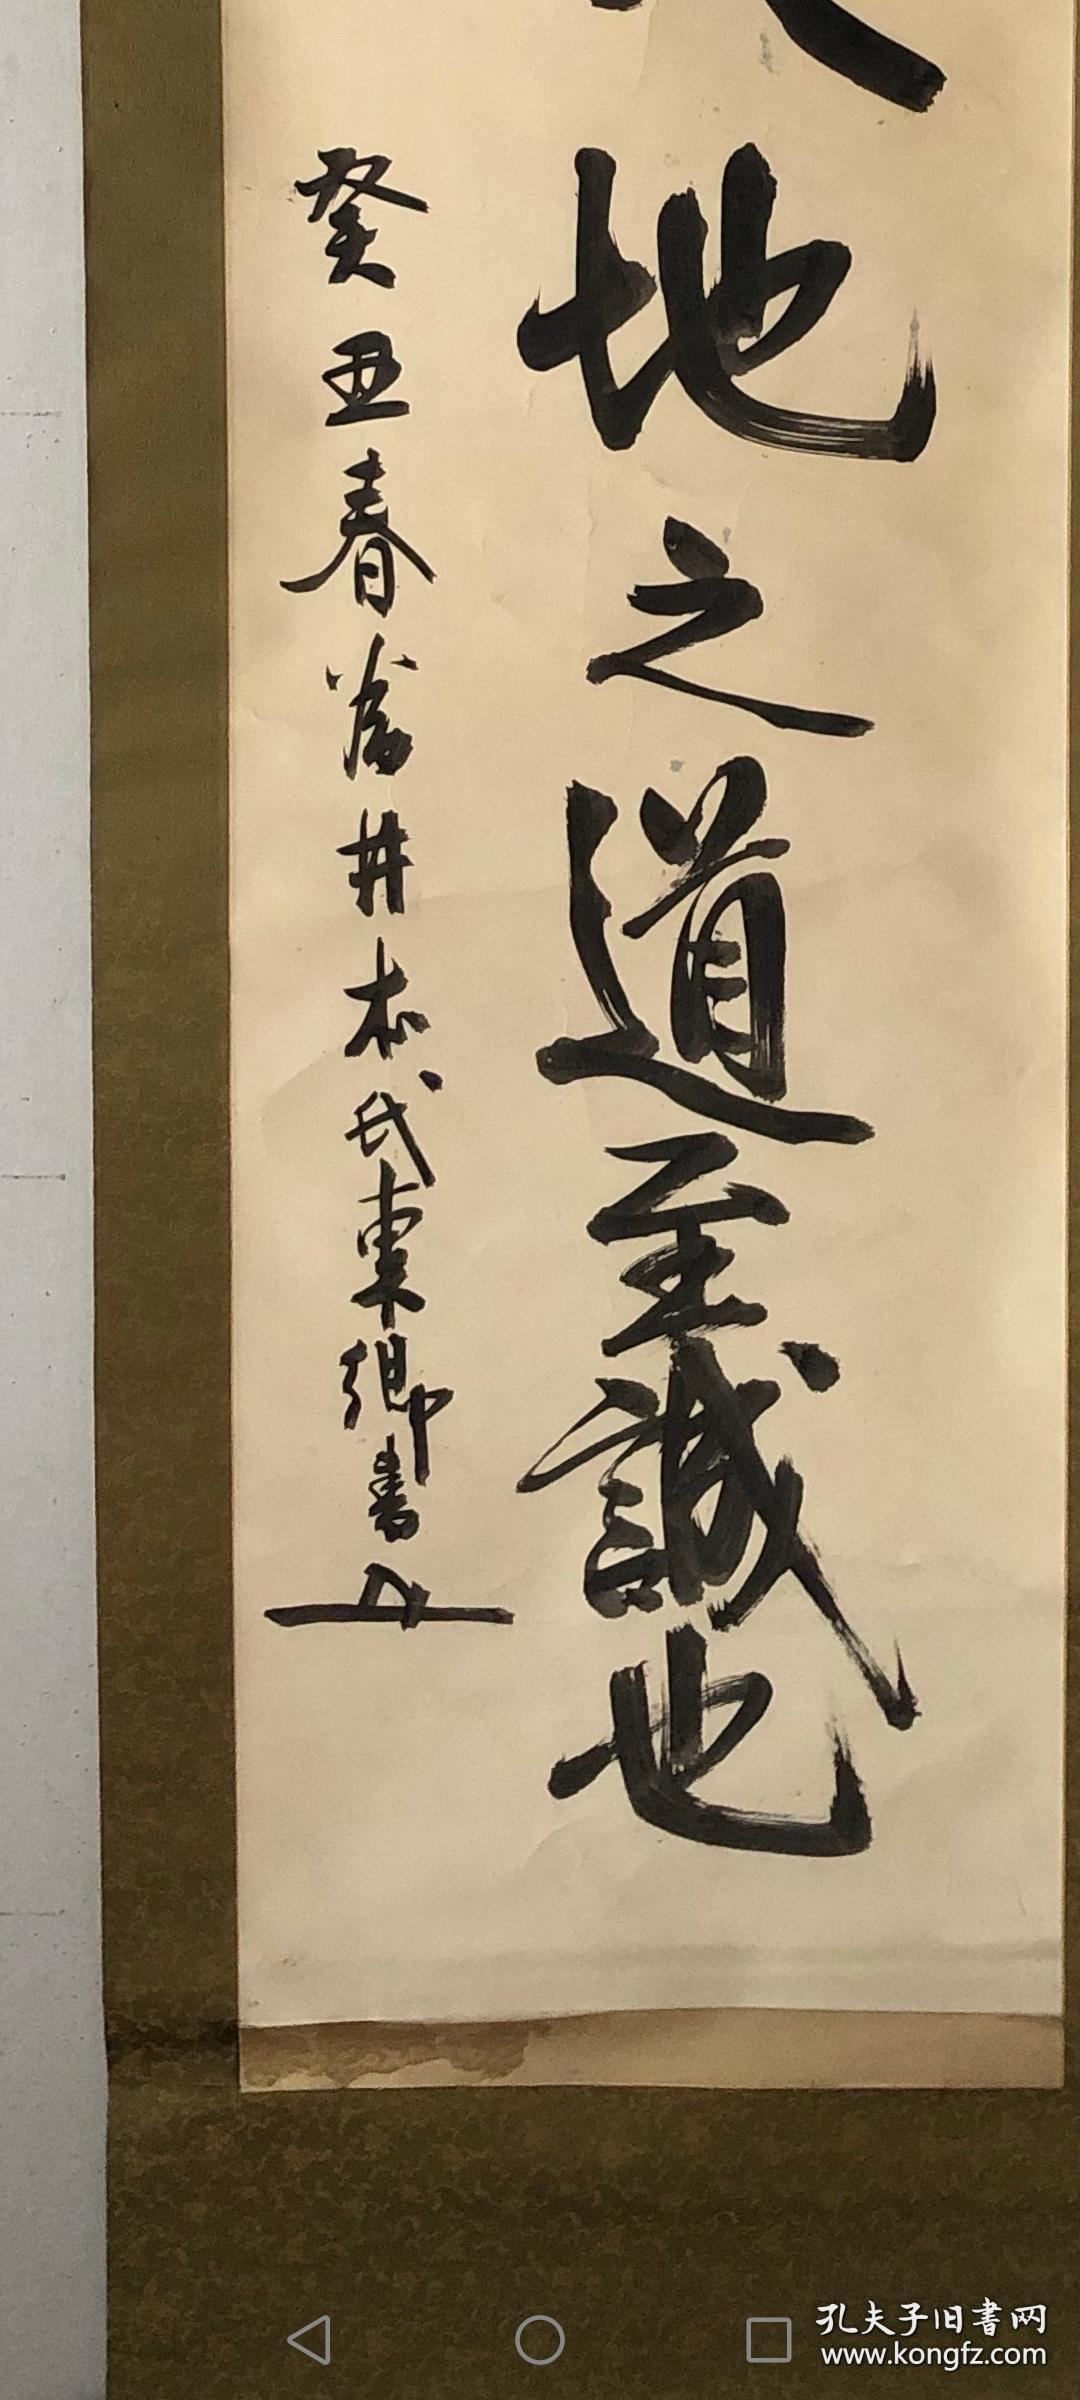 地之道至誠也
癸丑春為井本氏東郷書
孔夫子旧书网
www.kongfz.com